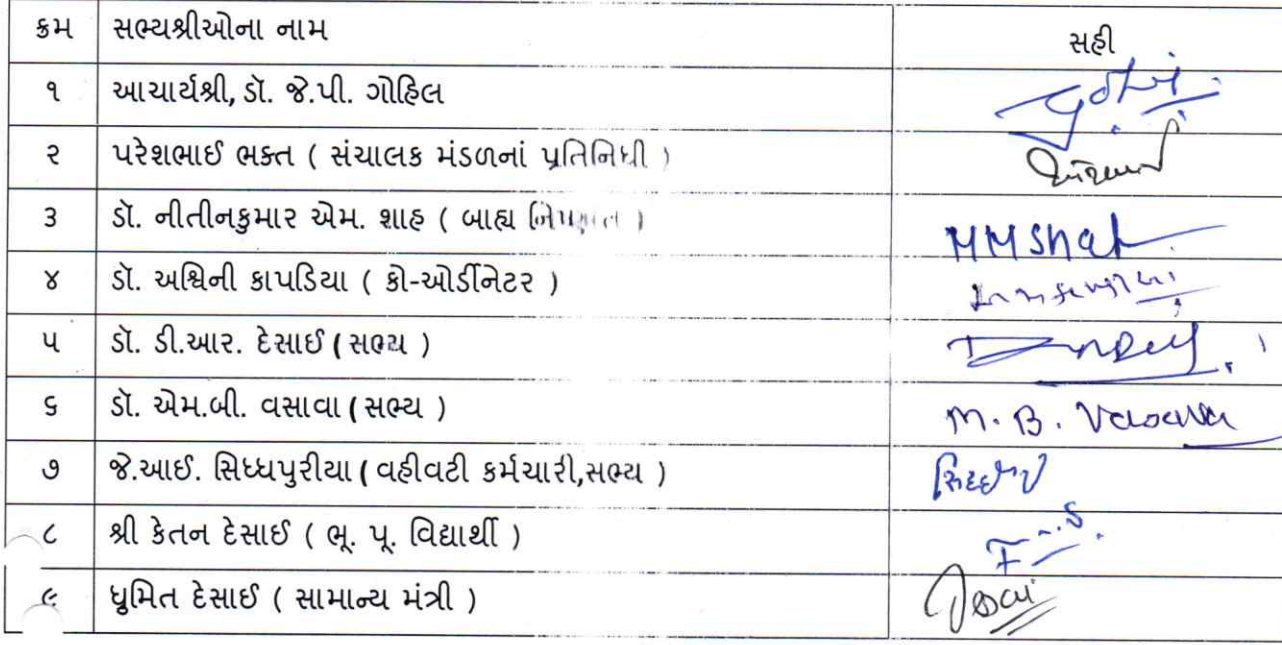 ક્રમ સભ્યશ્રીઓના નામ સહી
૧ આચાર્યશ્રી, ડૉ. જે.પી. ગોહિલ
૨ પરેશભાઈ ભક્ત ( સંચાલક મંડળનાં પ્રતિનિધી )
૩ ડૉ. નીતીનકુમાર એમ. શાહ ( બાહ્ય નિષ્ણાત ) MMShah
૪ ડૉ. અશ્વિની કાપડિયા ( કો-ઓર્ડીનેટર )
૫ ડૉ. ડી.આર. દેસાઈ ( સભ્ય )
૬ ડૉ. એમ.બી. વસાવા ( સભ્ય ) M. B. Vasava
૭ જે.આઈ. સિધ્ધપુરીયા ( વહીવટી કર્મચારી,સભ્ય )
૮ શ્રી કેતન દેસાઈ ( ભૂ. પૂ. વિદ્યાર્થી )
૯ ધ્રુમિત દેસાઈ ( સામાન્ય મંત્રી ) Desai